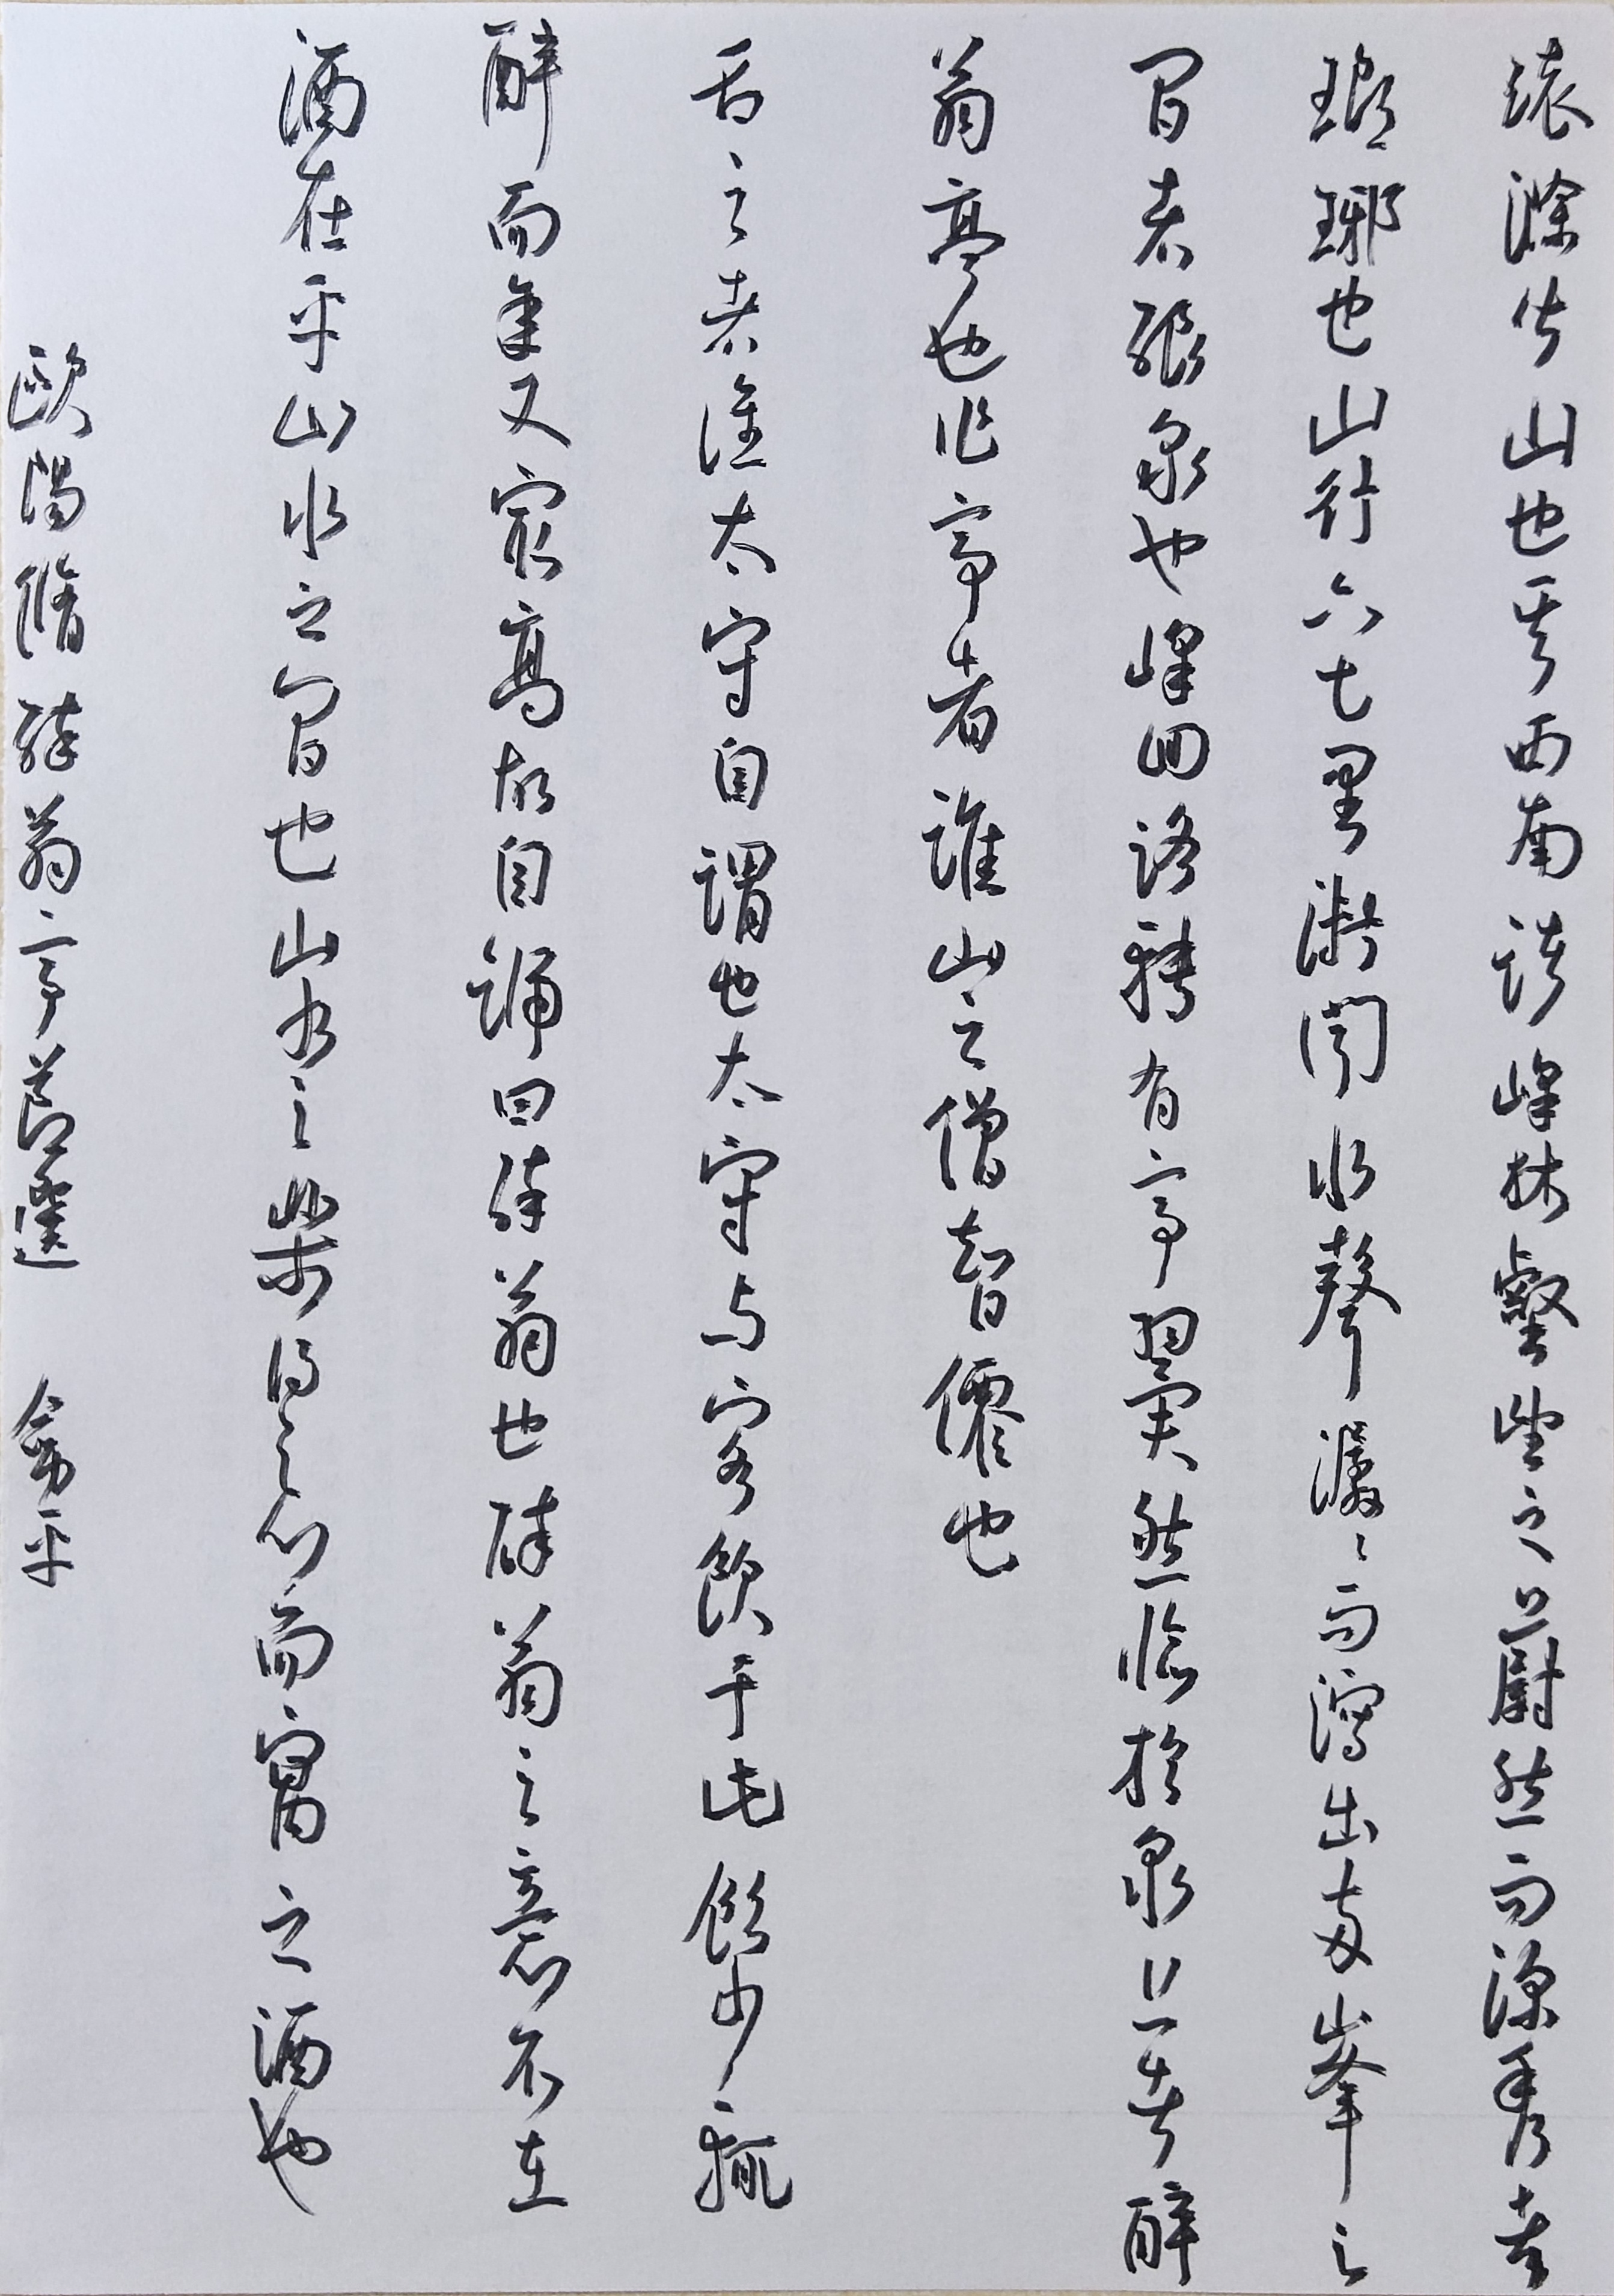 環滁皆山也其西南諸峰林壑望之蔚然而深秀者
瑯琊也山行六七里漸聞水聲潺〻而瀉出兩峯之
間者釀泉也峰回路轉有亭翼然臨於泉上者醉
翁亭也作亭者誰山之僧智僊也
名之者誰太守自謂也太守与客飲于此飲少輒
醉而年又最高故自號曰醉翁也醉翁之意不在
酒在乎山水之間也山水之樂得之心而寓之酒也
歐陽脩醉翁亭節選 平